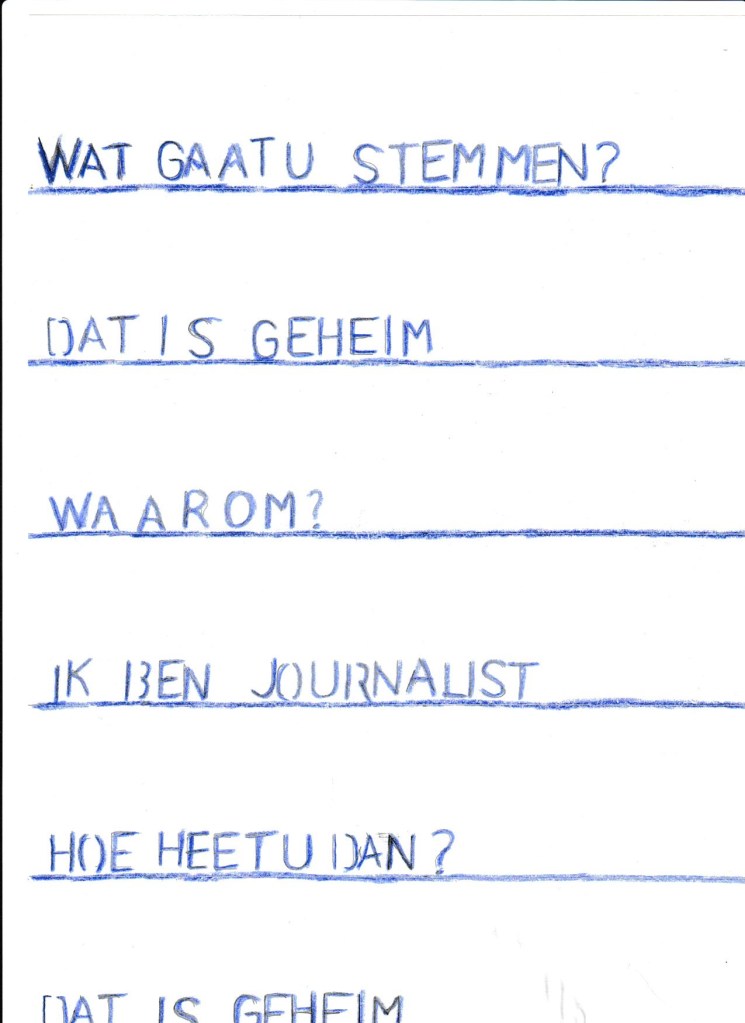 WAT GAAT U STEMMEN?
DAT IS GEHEIM
WAAROM?
IK BEN JOURNALIST
HOE HEET U DAN?
DAT IS GEHEIM